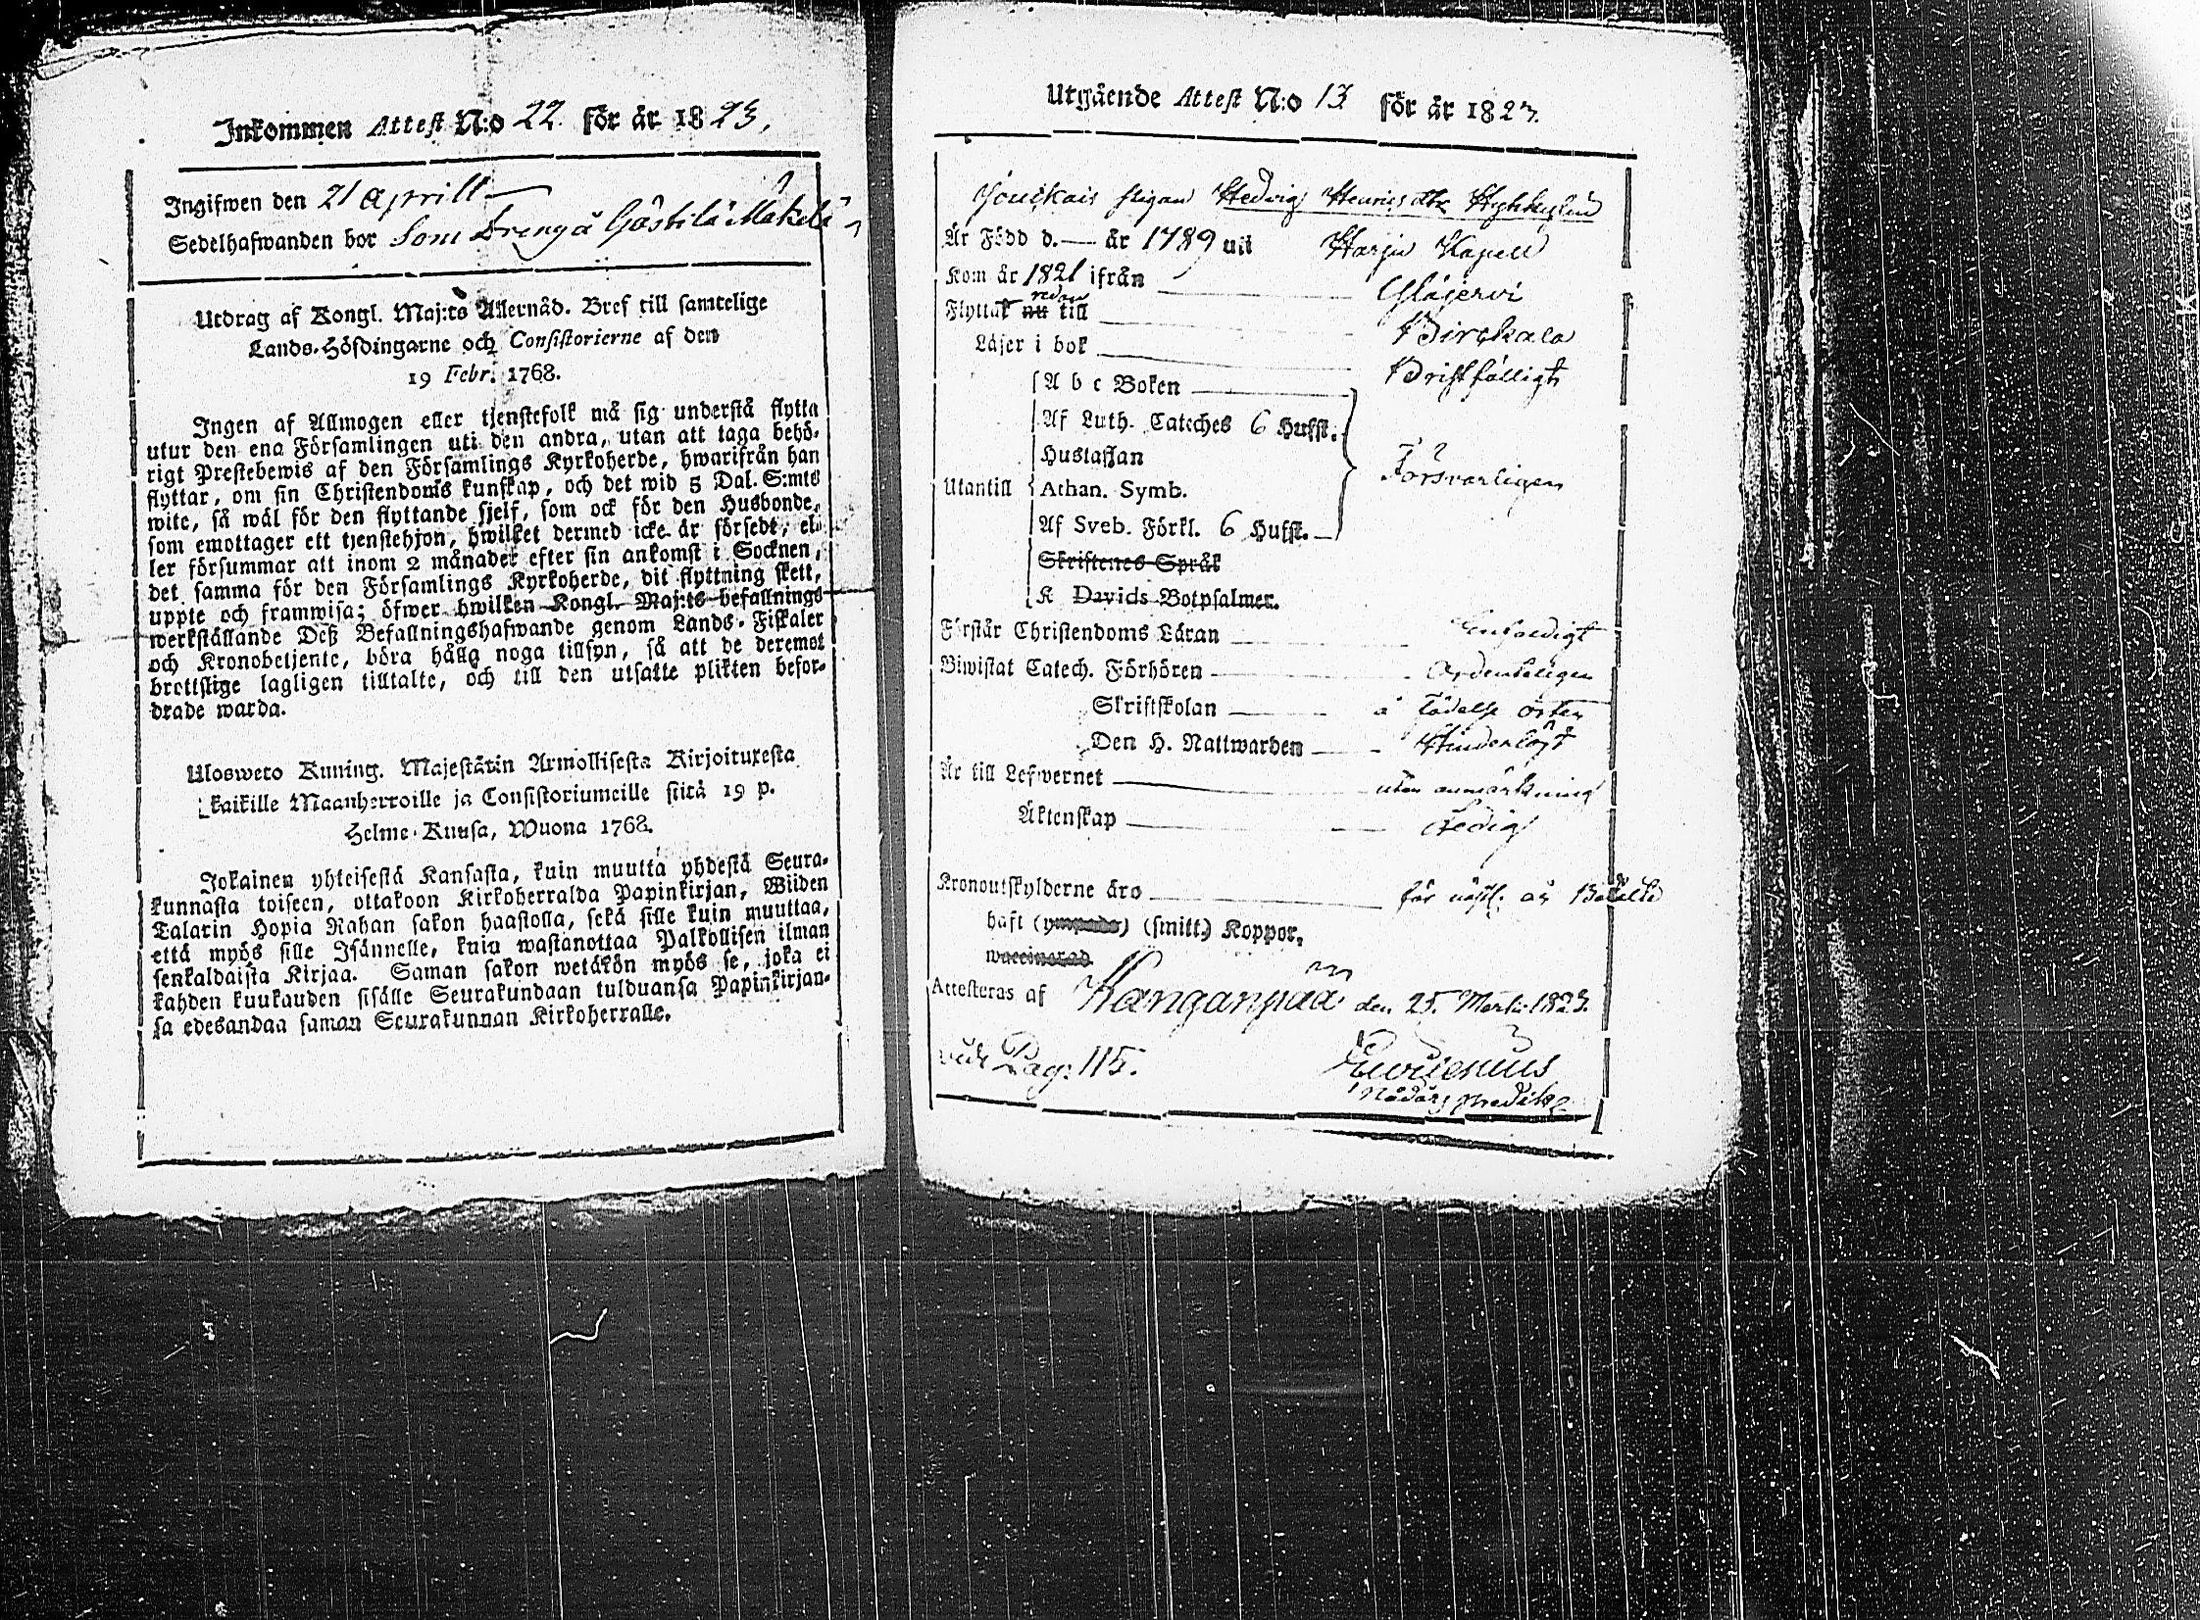 Inkommen Attest N:o 22. för år 1823.
Ingifwen den 21 Aprill
Sedelhafwanden bor Som Dreng å Gästilä Mäkelä
Utdrag af Kongl. Maj:ts Allernåd. Bref till samtelige
Lands-Höfdingarne och Consistorierne af den
19 Febr. 1768.
Ingen af Allmogen eller tjenstefolk må sig understå flytta
utur den ena Församlingen uti den andra, utan att taga behö-
rigt Prestebewis af den Församlings Kyrkoherde, hwarifrån han
flyttar, om sin Christendoms kunskap, och det wid 5 Dal. S:mts
wite, så wäl för den flyttande sjelf, som ock för den Husbonde,
som emottager ett tjenstehjon, hwilket dermed icke är försedt, el-
ler försummar att inom 2 månader efter sin ankomst i Socknen,
det samma för den Församlings Kyrkoherde, dit flyttning skett,
uppte och framwisa; öfwer hwilken Kongl. Maj:ts befallnings
werkställande Deß Befallningshafwande genom Lands-Fiskaler
och Kronobetjente, böra hålla noga tillsyn, så att de deremot
brottslige lagligen tilltalte, och till den utsatte plikten befor-
drade warda.
Ulosweto Kuning. Majestätin Armollisesta Kirjoituxesta
kaikille Maanherroille ja Consistoriumeille siitä 19 p.
Helme-Kuusa, Wuona 1768.
Jokainen yhteisestä Kansasta, kuin muutta yhdestä Seura-
kunnasta toiseen, ottakoon Kirkoherralda Papinkirjan, Wiiden
Talarin Hopia Rahan sakon haastolla, sekä sille kuin muuttaa,
että myös sille Isännelle, kuin wastanottaa Palkollisen ilman
senkaldaista Kirjaa. Saman sakon wetäkön myös se, joka ei
kahden kuukauden sisälle Seurakundaan tulduansa Papinkirjan-
sa edesandaa saman Seurakunnan Kirkoherralle.
Utgående Attest N:o 13 för år 1823.
pigan Hedwig Henrics dtr
Är Född d. — år 1789 uti Harju Kapell
Kom år 1821 ifrån
Flyttat nu redan till Birckala
Läser i bok Bristfälligt
A b c Boken
Af Luth. Cateches 6 Hufst.
Hustaflan
Utantill Athan. Symb. Försvarligen
Af Sveb. Förkl. 6 Hufst.
Skriftenes Språk
K Davids Botpsalmer.
Förstår Christendoms Läran Enfaldigt
Biwistat Catech. Förhören Ordenteligen
Skriftskolan å födelse orten
Den H. Nattwarden Hinderlöst
Är till Lefwernet utan anmärkning
Äktenskap Ledig
Kronoutskylderne äro för näst. år Betalte
haft (ympade) (smitt.) Koppor.
waccinerad
Attesteras af Kanganpää den 25. Martii 1823.
vide Pag: 115.